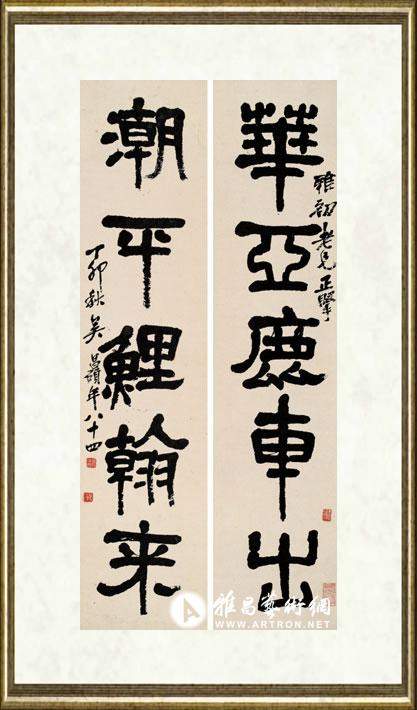 華亞鹿車出
雅初老兄正
潮平鯉翰来
丁卯秋吳昌碩年八十四
雅昌藝術網
WWW.ARTRON.NET